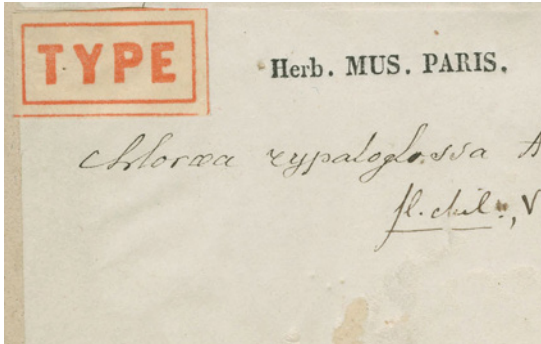 TYPE
Herb. MUS. PARIS.
Chloræa rypaloglossa A
fl. chil., V